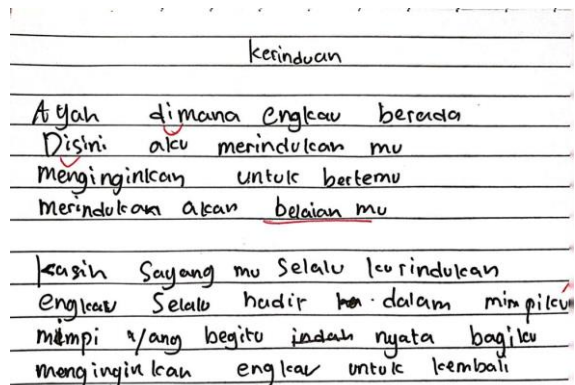 kerinduan
Ayah dimana engkau berada
Disini aku merindukan mu
menginginkan untuk bertemu
merindukan akan belaian mu
kasih sayang mu selalu kurindukan
engkau selalu hadir dalam mimpiku
mimpi yang begitu indah nyata bagiku
menginginkan engkau untuk kembali